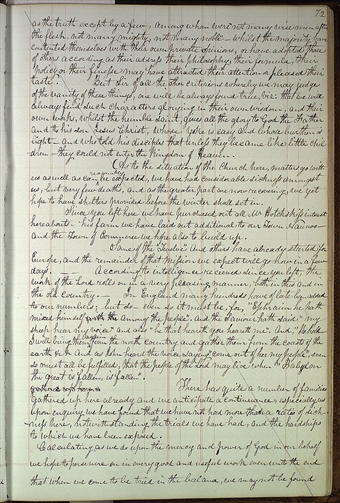 72
as the truth except by a few; among whom were not many wise men after
the flesh, not many mighty, not many noble — Whilst the majority have
contented themselves with their own private opinions, or have adopted those
of others according as their address, their philosophy, their formula, their
policy or their finesse may have attracted their attention or pleased their
taste.
But of all the other criterions whereby we may judge
of the vanity of these things one will be always found true, viz: that we will
always find such characters glorying in their own wisdom, and their
own works, whilst the humble saint gives all the glory to God the Father
and to his son Jesus Christ, whose yoke is easy and whose burthen is
light — and who told his disciples that unless they became like little chil
dren — they could not enter the Kingdom of Heaven.
As to the situation of the Church here, matters go with
us as well as can reasonably be expected, we have had considerable sickness amongst
us, but very few deaths, and as the greater part are now recovering, we yet
hope to have shelters provided before the winter shall set in.
Since you left here we have purchased out all Mr Hotchkiss interest
hereabouts — his farm we have laid out additional to our town, Nauvoo —
and the town of Commerce we hope also to build up.
Some of the and others have already started for
Europe, and the remainder of that mission we expect will go now in a few
days. According to intelligence received since you left, the
work of the Lord rolls on in a very pleasing manner, both in this and in
the old country. — In England many hundreds have of late been added
to our numbers; but so even so it must be for, "Ephraim he hath
mixed himself with the among the people". And the Saviour hath said "my
sheep hear my voice" and also "he that heareth you heareth me". And, "Behold
I will bring them again from the north country and gather them from the coasts of the
earth &c. And as John heard the voice saying "come out of her my people", even
so must all be fulfilled, that the people of the Lord may live when "Babylon
the great is fallen, is fallen".
There has quite a number of families
gathered up here already and we anticipate a continuance, especially as
upon enquiry we have found that we have not had more than a ratio of sick-
ness here, notwithstanding the trials we have had, and the hardships
to which we have been exposed.
Calculating as we do upon the mercy and power of God in our behalf
we hope to persevere on in every good and useful work even unto the end
that when we come to be tried in the balance, we may not be found